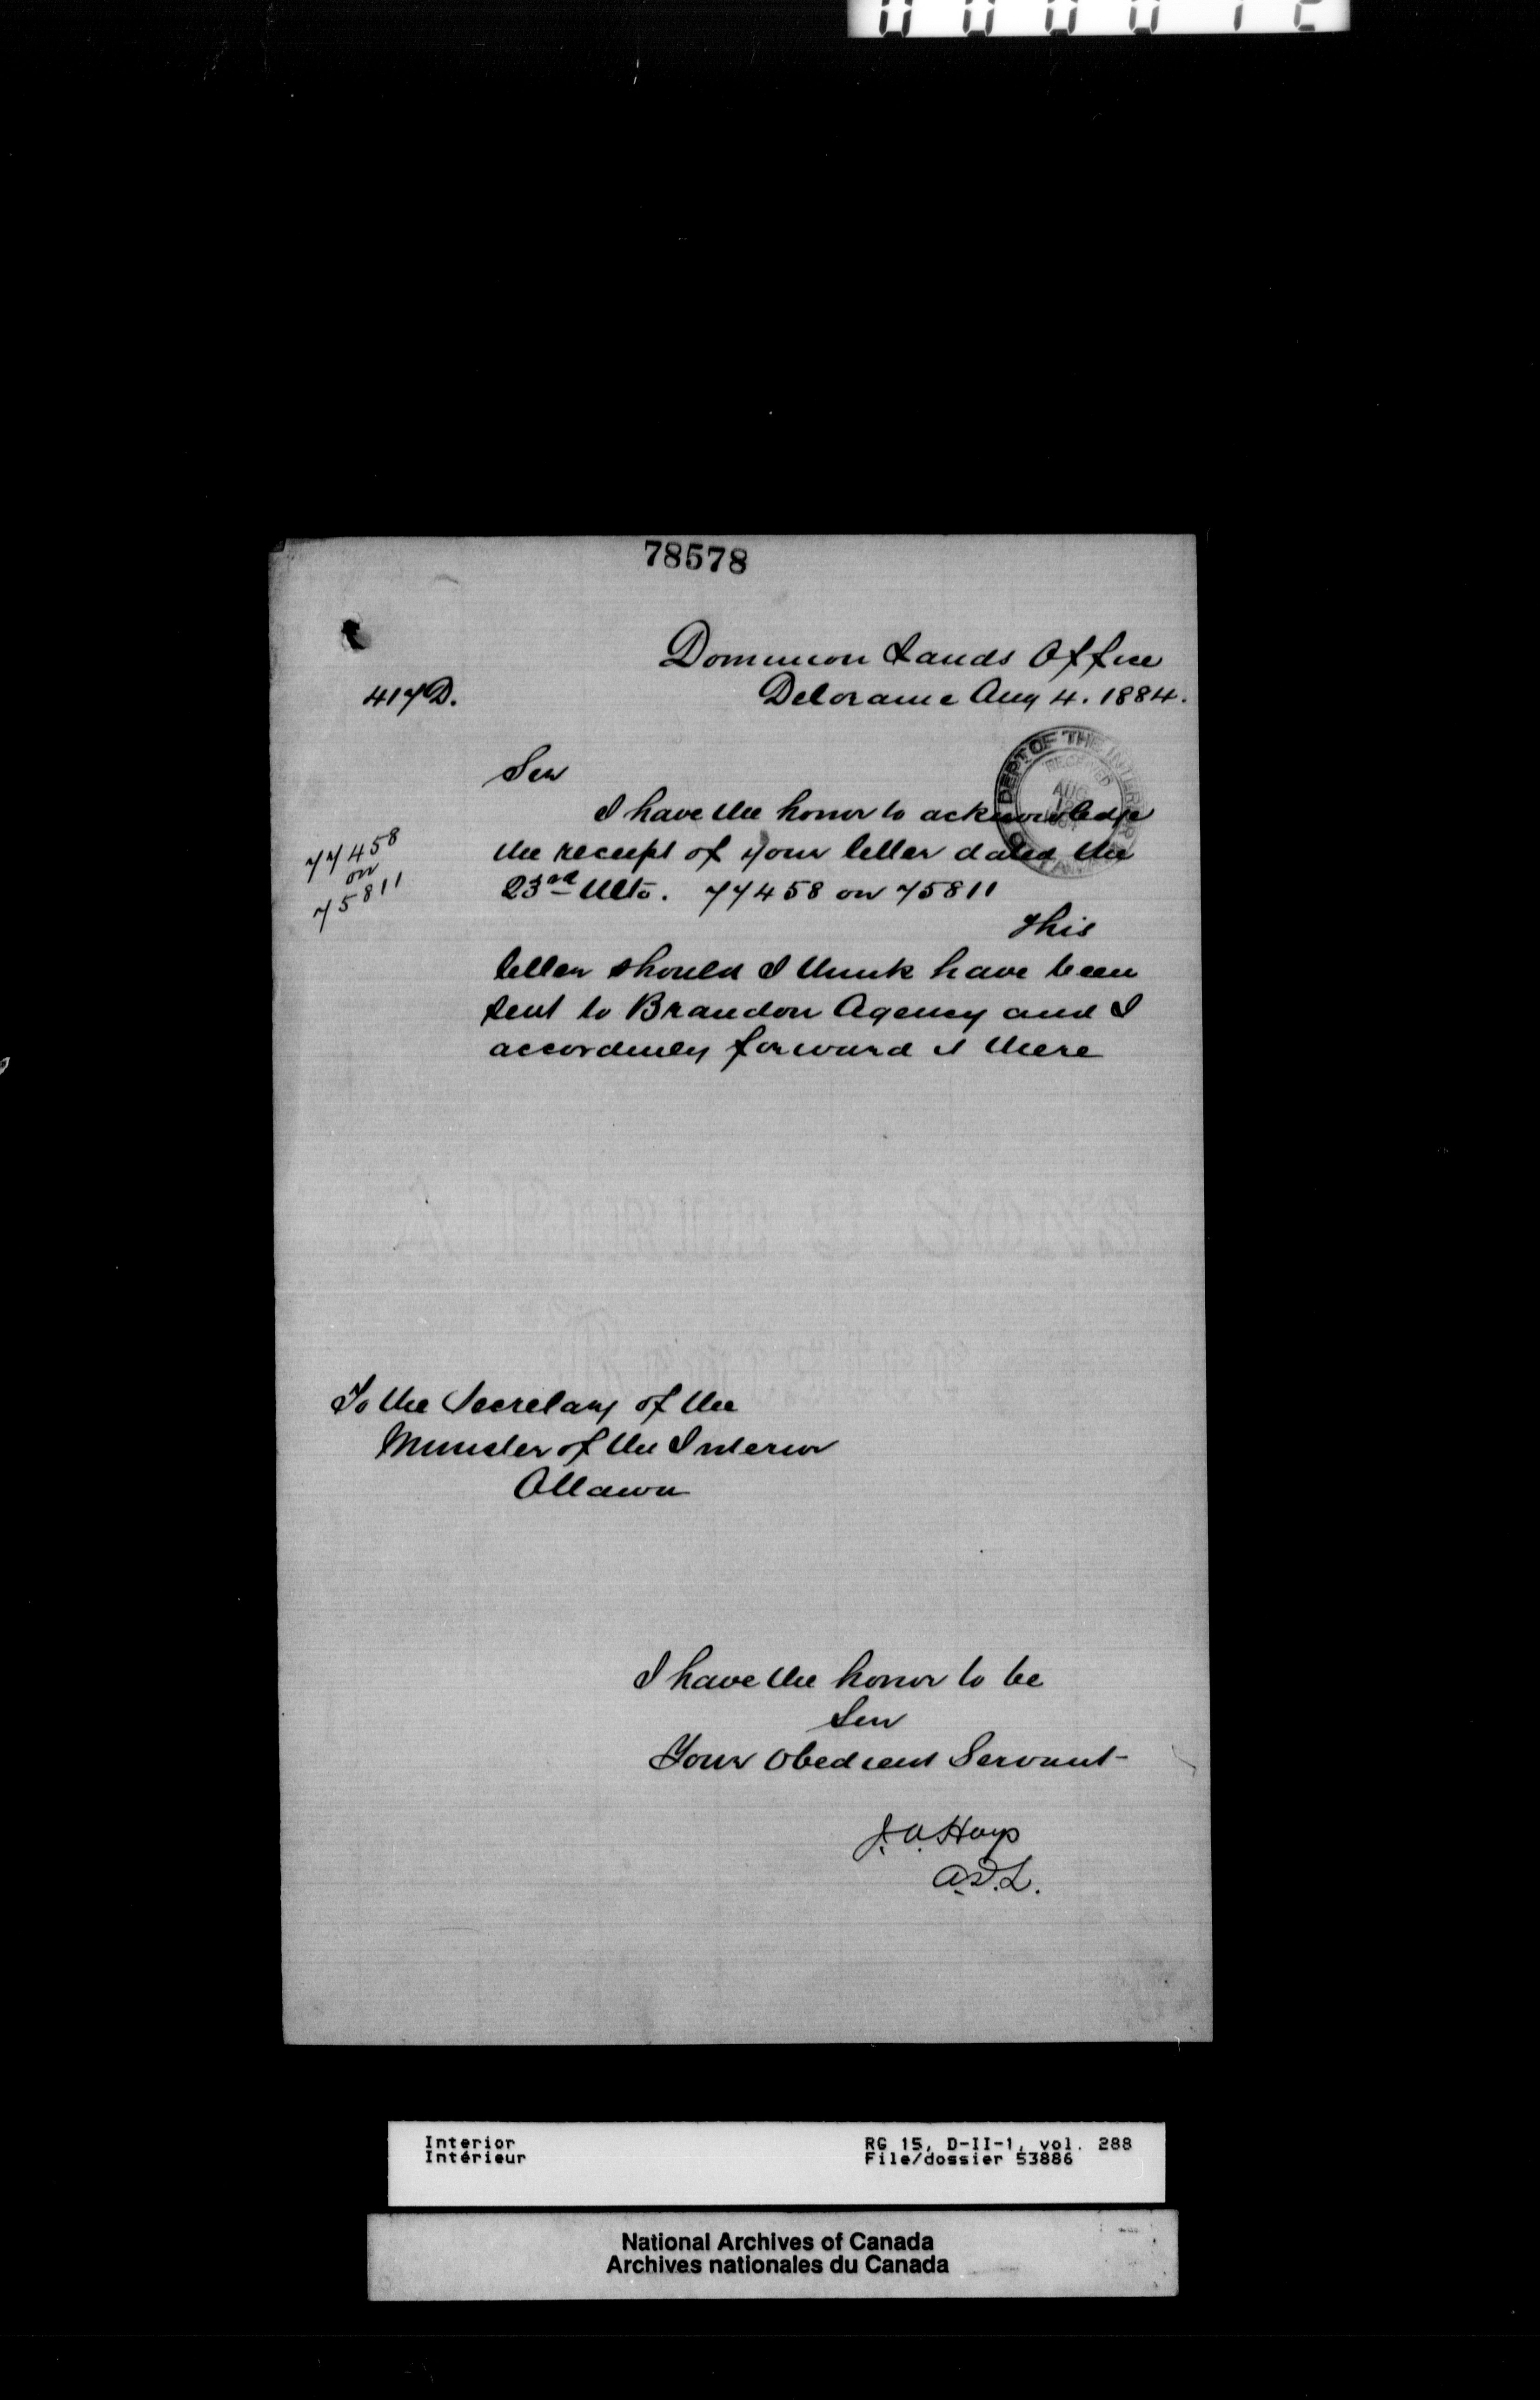 78578
Dominion Lands Office
417D.
Deloraine Aug 4. 1884.
DEPT. OF THE INTERIOR
RECEIVED
AUG
Sir
I have the honor to acknowledge
the receipt of your letter dated the
23rd Ulto. 77458 on 75811
77458
on
75811
This
letter should I think have been
sent to Brandon Agency and I
accordingly forward it there
To the Secretary of the
Minister of the Interior
Ottawa
I have the honor to be
Sir
Your Obedient Servant
J.A. Hays
A.D.L.
Interior
Intérieur
RG 15, D-II-1, vol. 288
File/dossier 53886
National Archives of Canada
Archives nationales du Canada